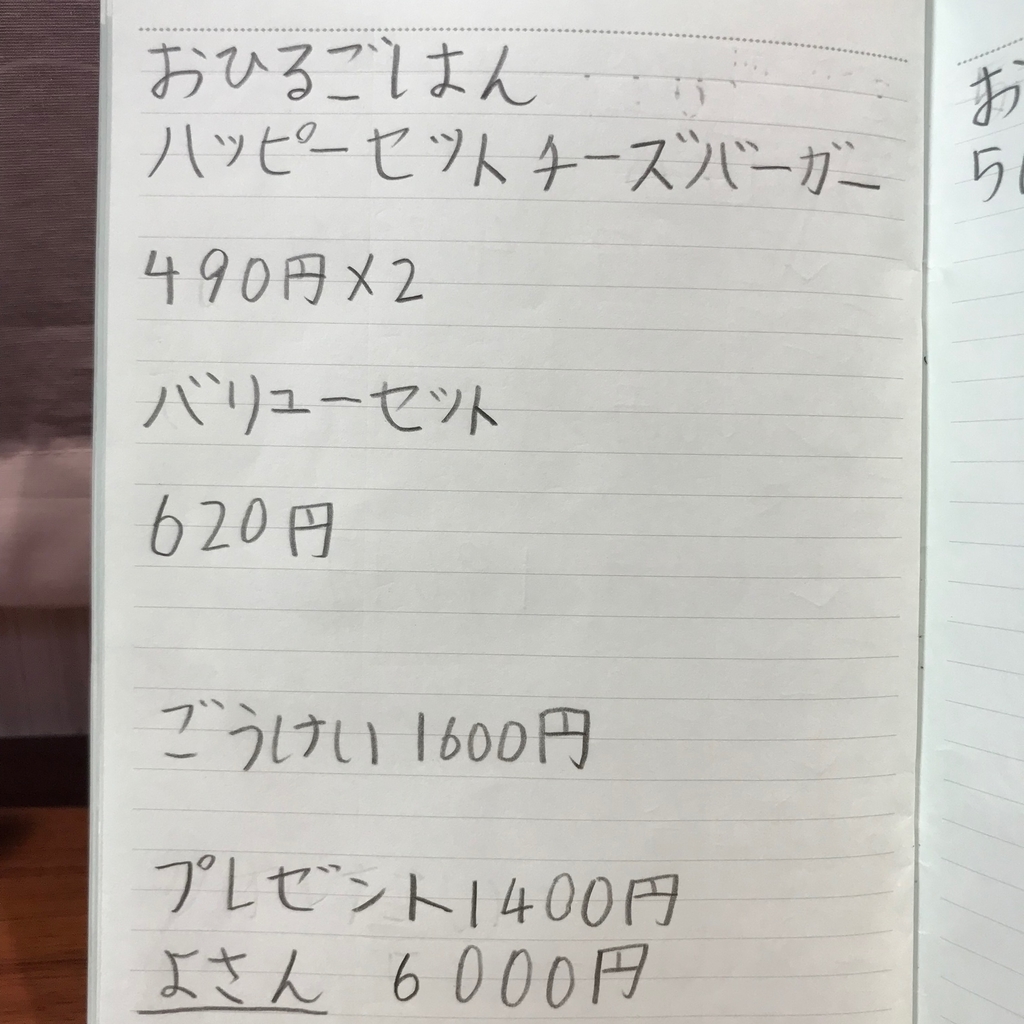 おひるごはん
ハッピーセット チーズバーガー
490円×2
バリューセット
620円
ごうけい 1600円
プレゼント1400円
よさん 6000円
お
5